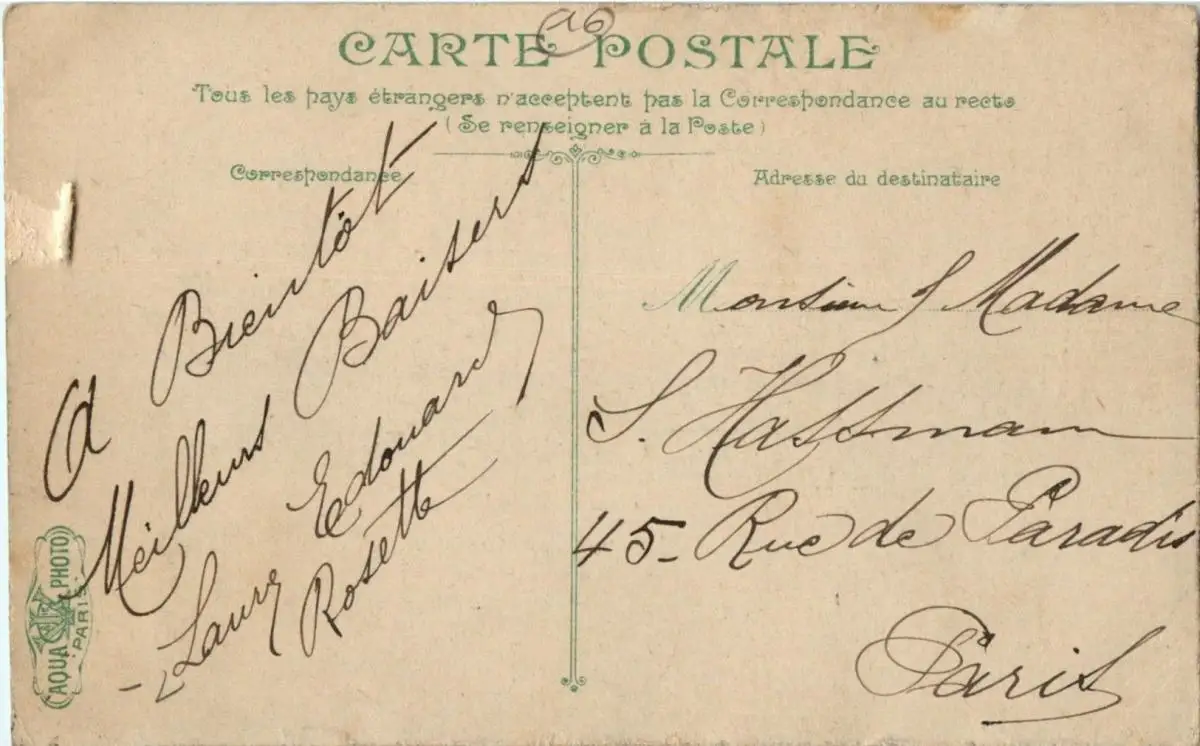 16
CARTE POSTALE
Tous les pays étrangers n'acceptent pas la Correspondance au recto
(Se renseigner à la Poste)
Correspondance
A Bientôt
Meilleurs Baisers
Laure Edouard
Rosette
AQUA PHOTO
PARIS
Adresse du destinataire
Monsieur & Madame
S. Hassmann
45 - Rue de Paradis
Paris